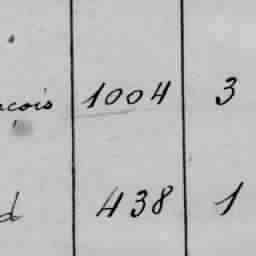 çois 1004 3
d 438 1